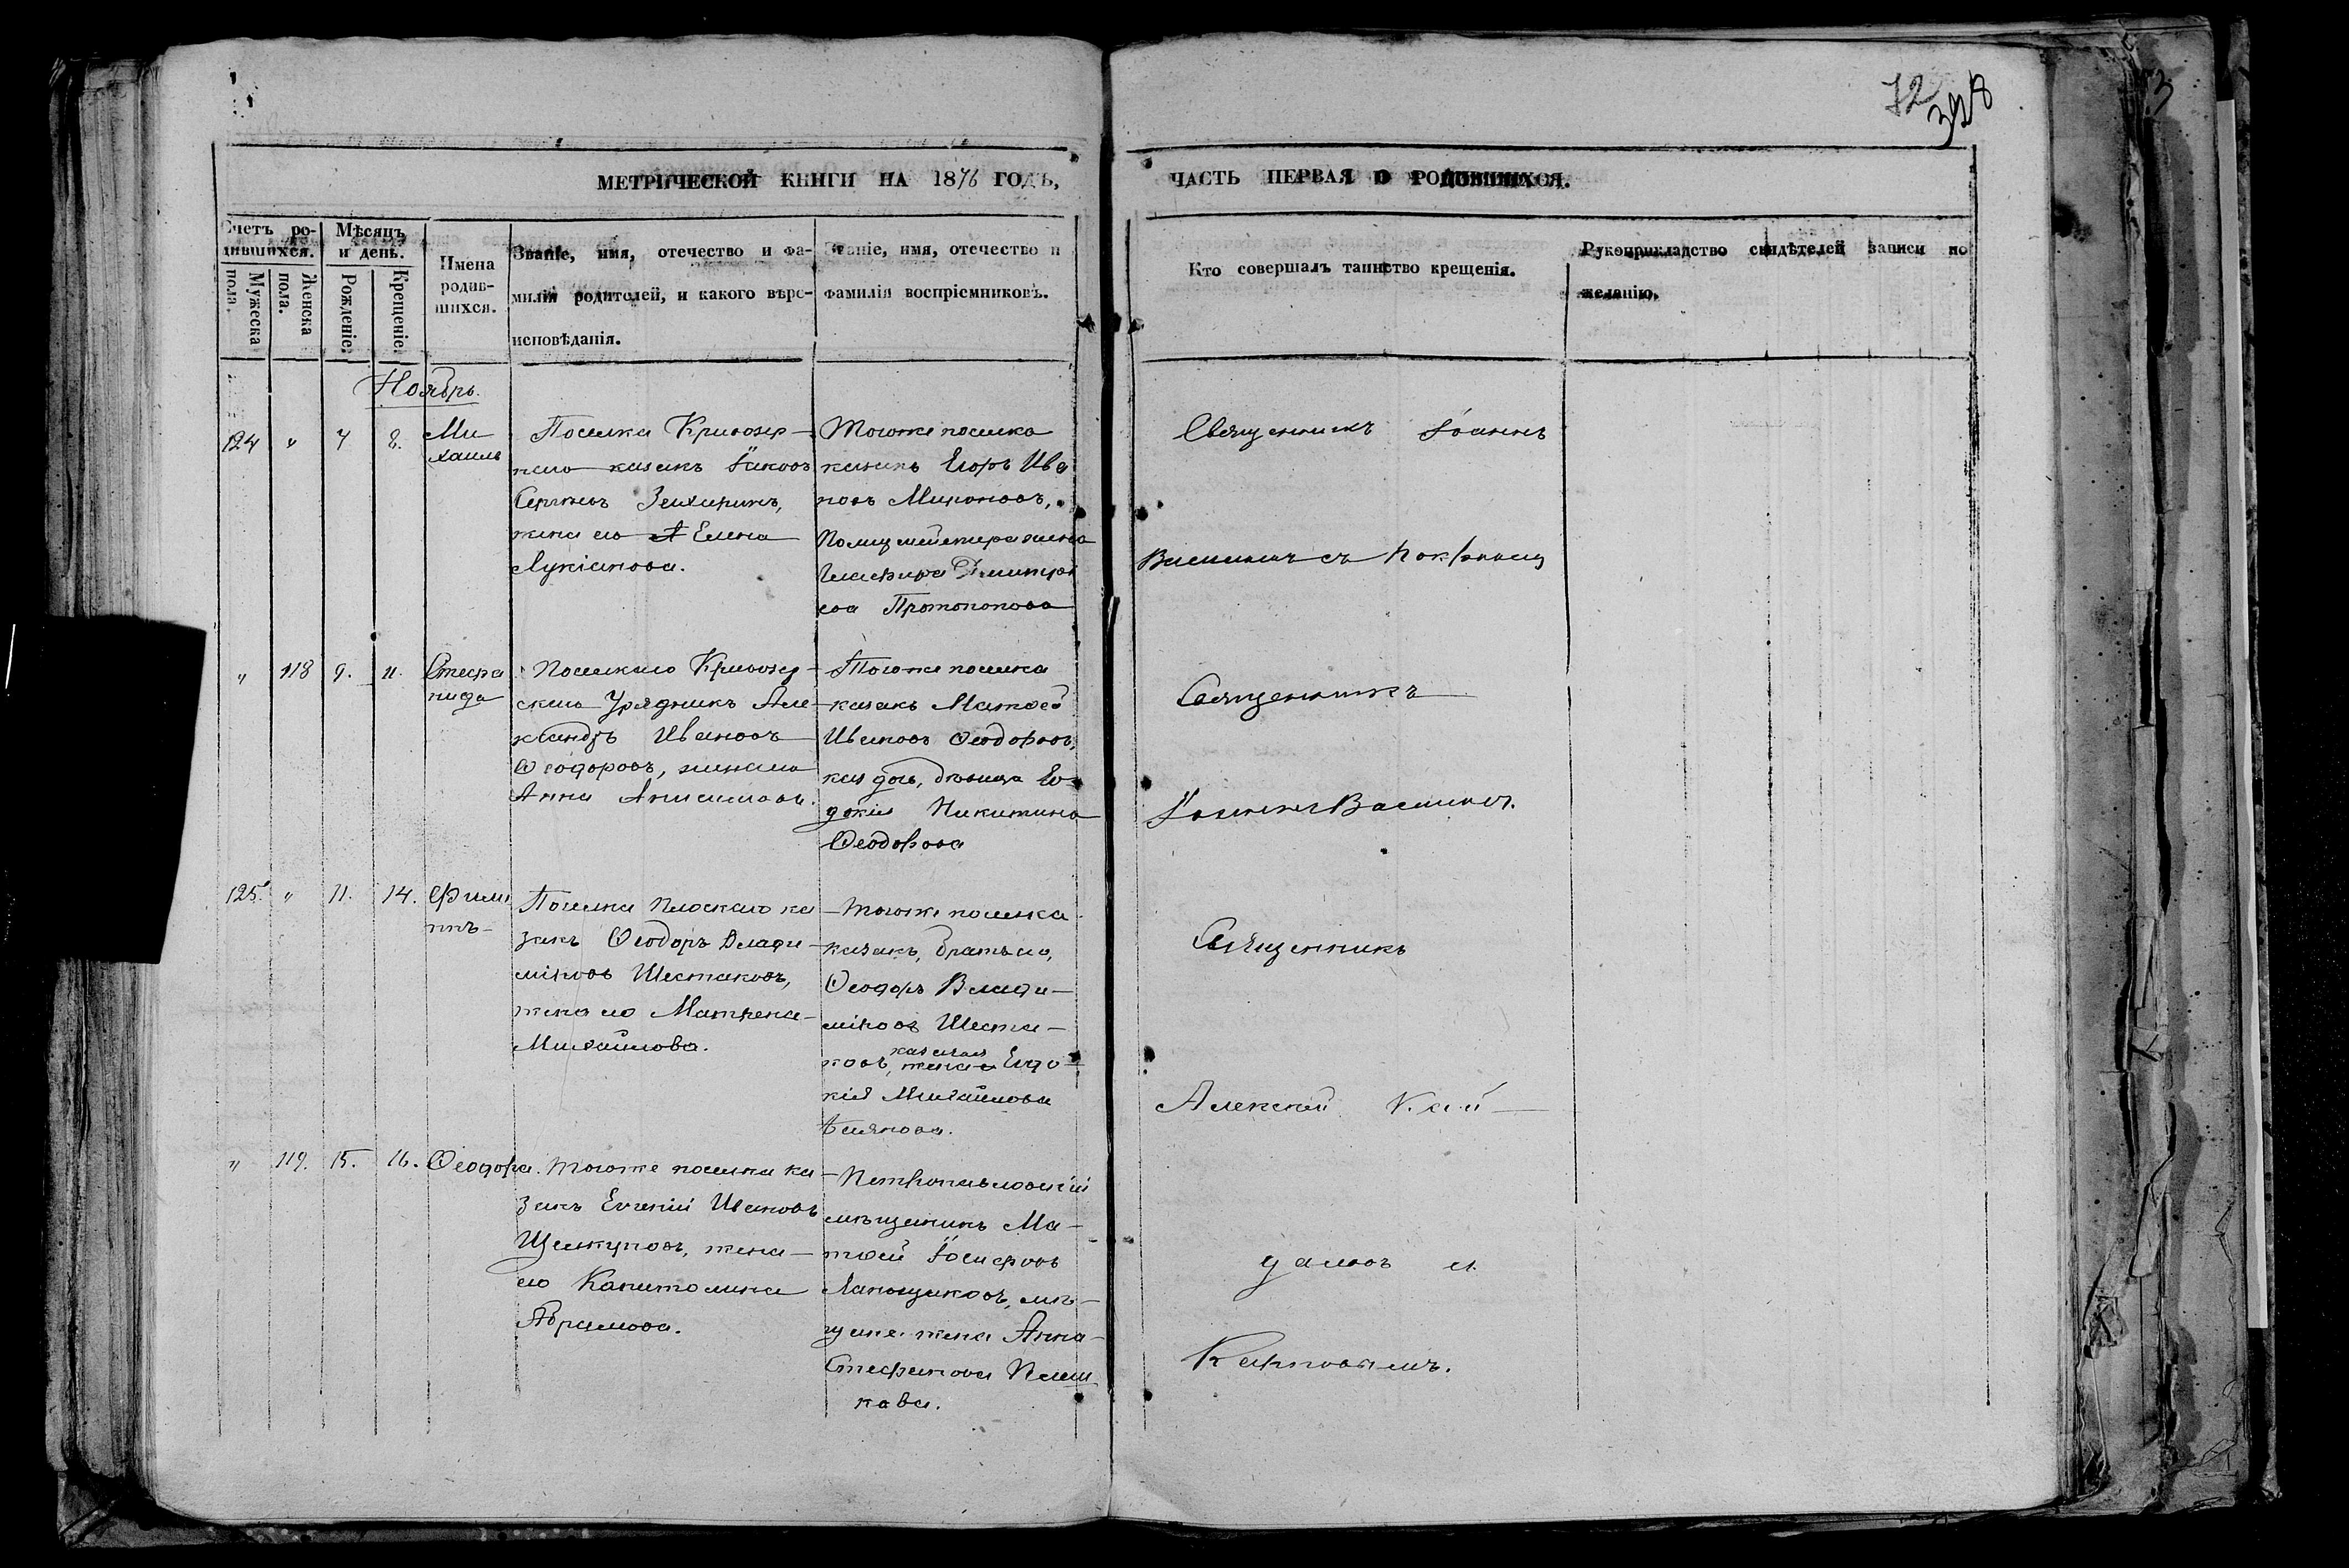 72
398
3
МЕТРИЧЕСКОЙ КНИГИ НА 1876 ГОДЪ,
ЧАСТЬ ПЕРВАЯ О РОДИВШИХСЯ.
Счетъ ро-
дившихся.
Мужеска
пола.
Женска
пола.
Мѣсяцъ
и день.
Рожденіе.
Крещеніе.
Имена
родив-
шихся.
Званіе, имя, отечество и фа-
милія родителей, и какого вѣро-
исповѣданія.
Званіе, имя, отечество и
фамилія воспріемниковъ.
Кто совершалъ таинство крещенія.
Рукоприкладство свидѣтелей записи по
желанію.
Ноябрь.
124 " 7 8.
Ми
хаилъ
Поселка Кривозер-
каго казакъ Іаковъ
Сергѣевъ
жена его Елена
Лукіанова.
Тогоже поселка
казакъ Егоръ Ива
новъ Мироновъ,
жена
Глафира Димитрі
ева Протопопова
Священникъ Іоаннъ
Васильевъ съ
" 118 9. 11.
Стефа
нида
Поселкаго Кривозер-
скаго Урядникъ Але-
ксандръ Ивановъ
Ѳеодоровъ, жена его
Анна Анисимова.
Тогоже поселка
казакъ Матѳей
Ивановъ Ѳеодоровъ,
каз. дочь, дѣвица Ев-
докія Никитина
Ѳеодорова
Священникъ
Іоаннъ Васильевъ.
125. " 11. 14.
Фили
ппъ
Поселка Плоскаго ка
закъ Ѳеодоръ Влади-
міровъ Шестаковъ,
жена его Матрена
Михайлова.
Тогоже поселка
казакъ, братъ его,
Ѳеодоръ Влади-
міровъ Шеста-
ковъ, казачья жена Евдо-
кія Михайлова
Священникъ
Алексѣй Кай-
" 119. 15. 16.
Ѳеодора.
Тогоже поселка ка
закъ Евгеній Ивановъ
Щелкуновъ, жена
его Капитолина
Абрамова.
Петропавловскій
мѣщанинъ Ма-
тѳей Іосифовъ
мѣ-
щане. жена Анна
Стефанова
кова.
даловъ и.
Карповымъ.